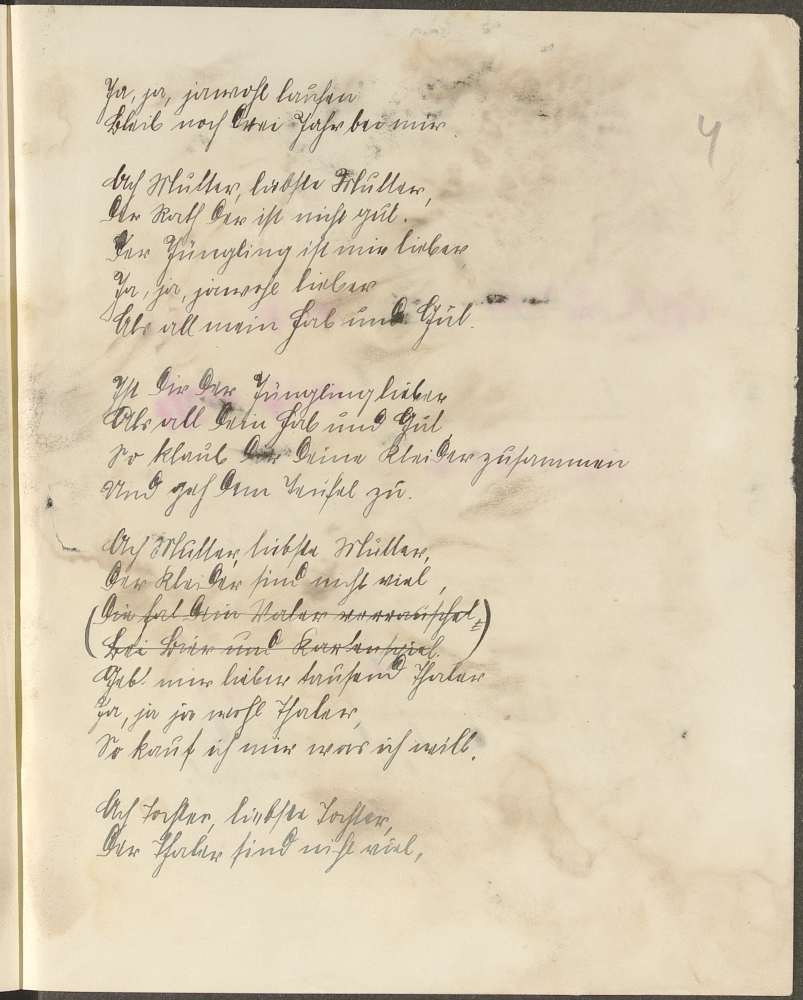 Ja, ja, jawohl laufen
Bleib noch drei Jahr bei mir.
4
Ach Mutter, liebste Mutter,
Der Rath der ist nicht gut.
Der Jüngling ist mir lieber
Ja, ja, jawohl lieber
Als all mein Hab und Gut.
Ist dir der Jüngling lieber
Als all dein Hab und Gut
So klaub deine Kleider zusammen
Und geh dem Teufel zu.
Ach Mutter, liebste Mutter,
Der Kleider sind nicht viel,
(Die hat dein Vater verrauschet,
Bei Bier und Kartenspiel.)
Gebt mir lieber tausend Thaler
Ja, ja ja wohl Thaler,
So kauf ich mir was ich will.
Ach Tochter, liebste Tochter,
Der Thaler sind nicht viel,